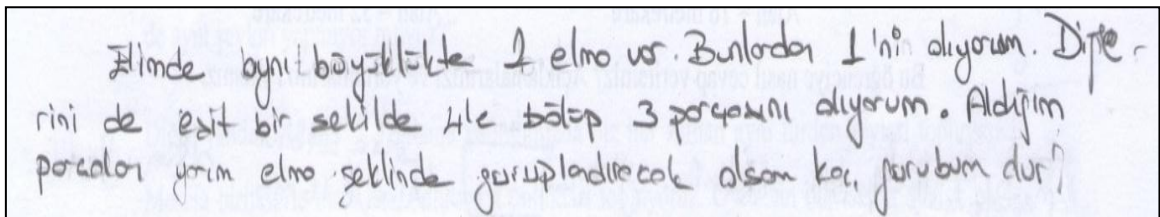 Elimde aynı büyüklükte 2 elma var. Bunlardan 1'nin alıyorum. Diğe
rini de eşit bir şekilde 4'e bölüp 3 parçasını alıyorum. Aldığım
parçaları yarım elma şeklinde guruplandıracak olsam kaç gurubum dur?